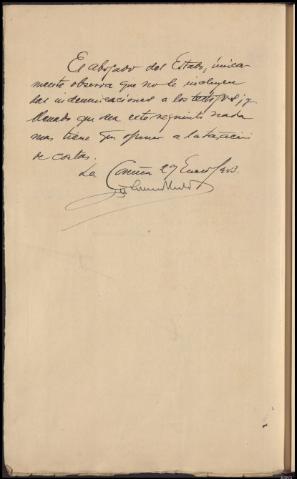 El abogado del Estado, única-
mente observa que no le incluyen
las indemnizaciones a los testigos, y
llenado que sea este requisito nada
mas tiene que oponer a la tasación
de costas.
La Coruña 27 Enero